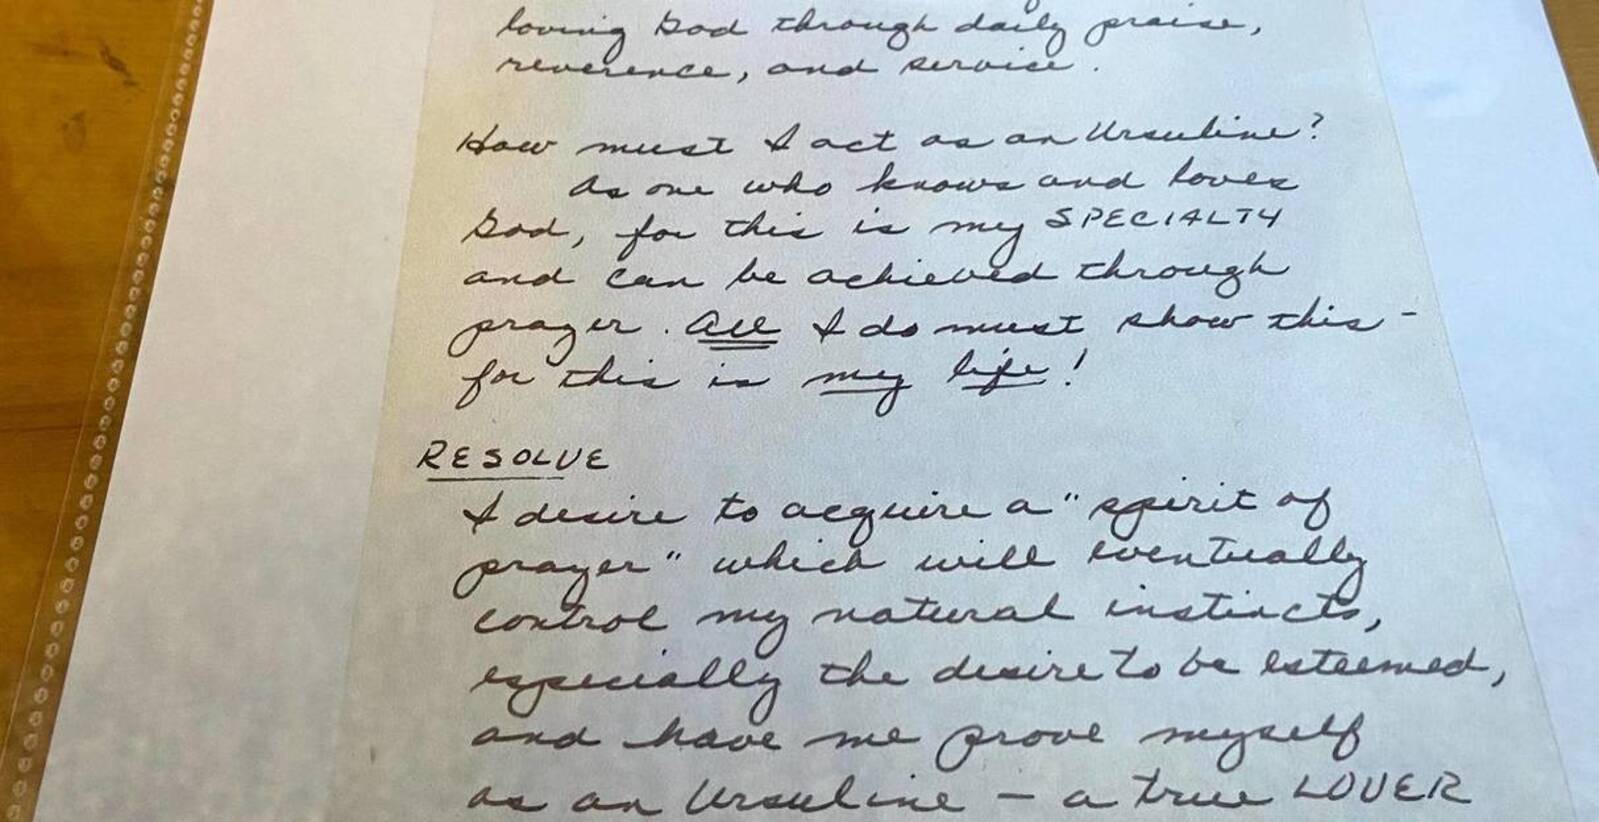 loving God through daily praise,
reverence, and service.
How must I act as an Ursuline?
As one who knows and loves
God, for this is my SPECIALTY
and can be achieved through
prayer. All I do must show this -
for this is my life!
RESOLVE
I desire to acquire a "spirit of
prayer" which will eventually
control my natural instincts,
especially the desire to be esteemed,
and have me prove myself
as an Ursuline - a true LOVER